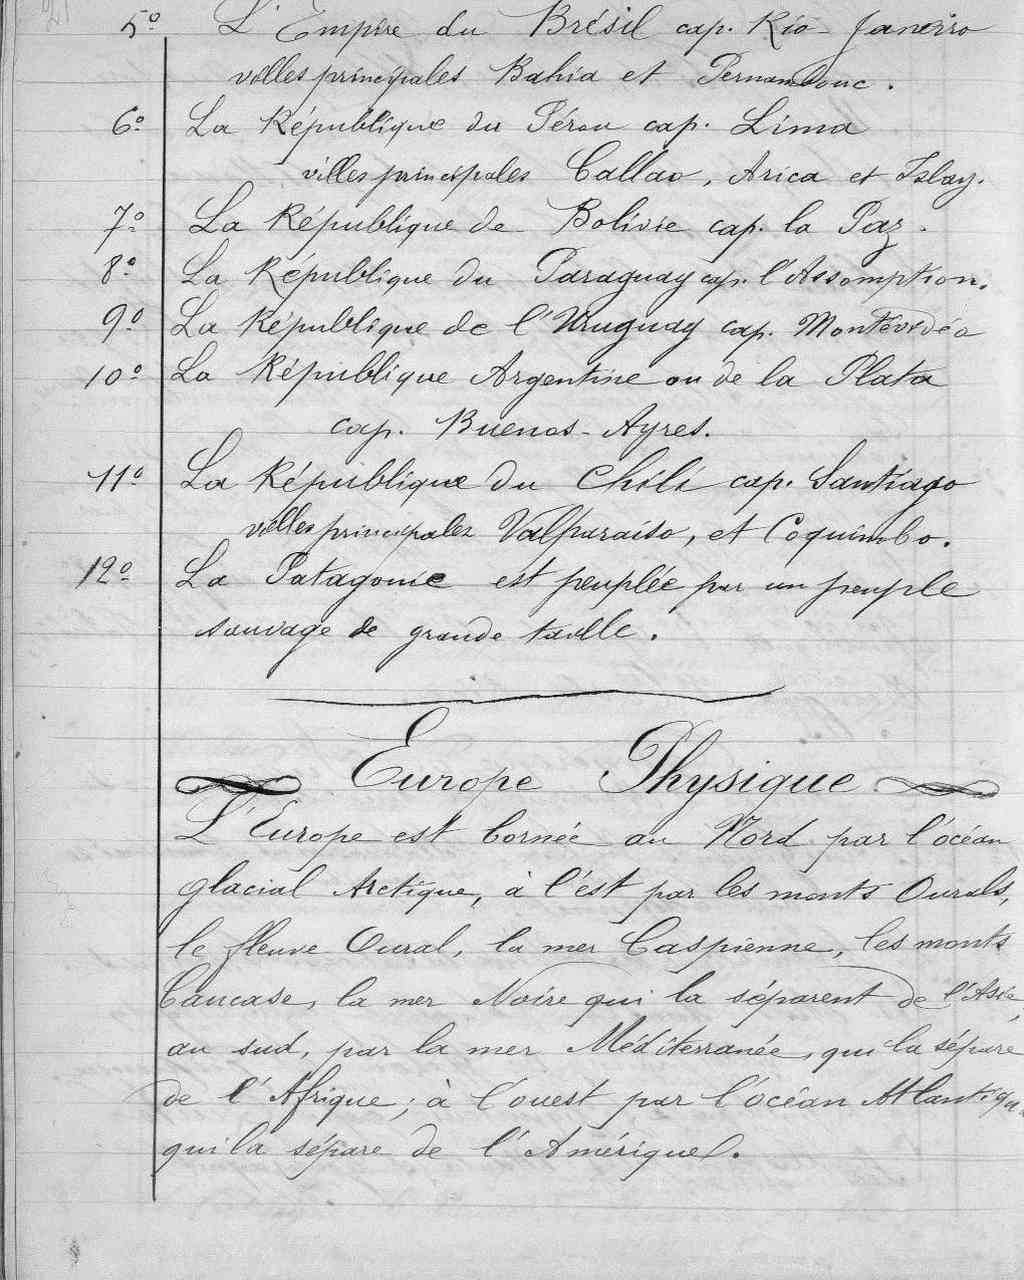 5º L'Empire du Brésil cap. Rio-Janeiro
villes principales Bahia et Pernambouc.
6º La République du Pérou cap. Lima
villes principales Callao, Arica et Islay.
7º La République de Bolivie cap. la Paz.
8º La République du Paraguay cap. l'Assomption.
9º La République de l'Uruguay cap. Montévidéo
10º La République Argentine ou de la Plata
cap. Buenos-Ayres.
11º La République du Chili cap. Santiago
villes principales Valparaiso, et Coquimbo.
12º La Patagonie est peuplée par un peuple
sauvage de grande taille.
Europe Physique
L'Europe est bornée au Nord par l'océan
glacial Arctique, à l'est par les monts Ourals,
le fleuve Oural, la mer Caspienne, les monts
Caucase, la mer Noire qui la séparent de l'Asie,
au sud, par la mer Méditerranée, qui la sépare
de l'Afrique; à l'ouest par l'océan Atlantique
qui la sépare de l'Amérique.